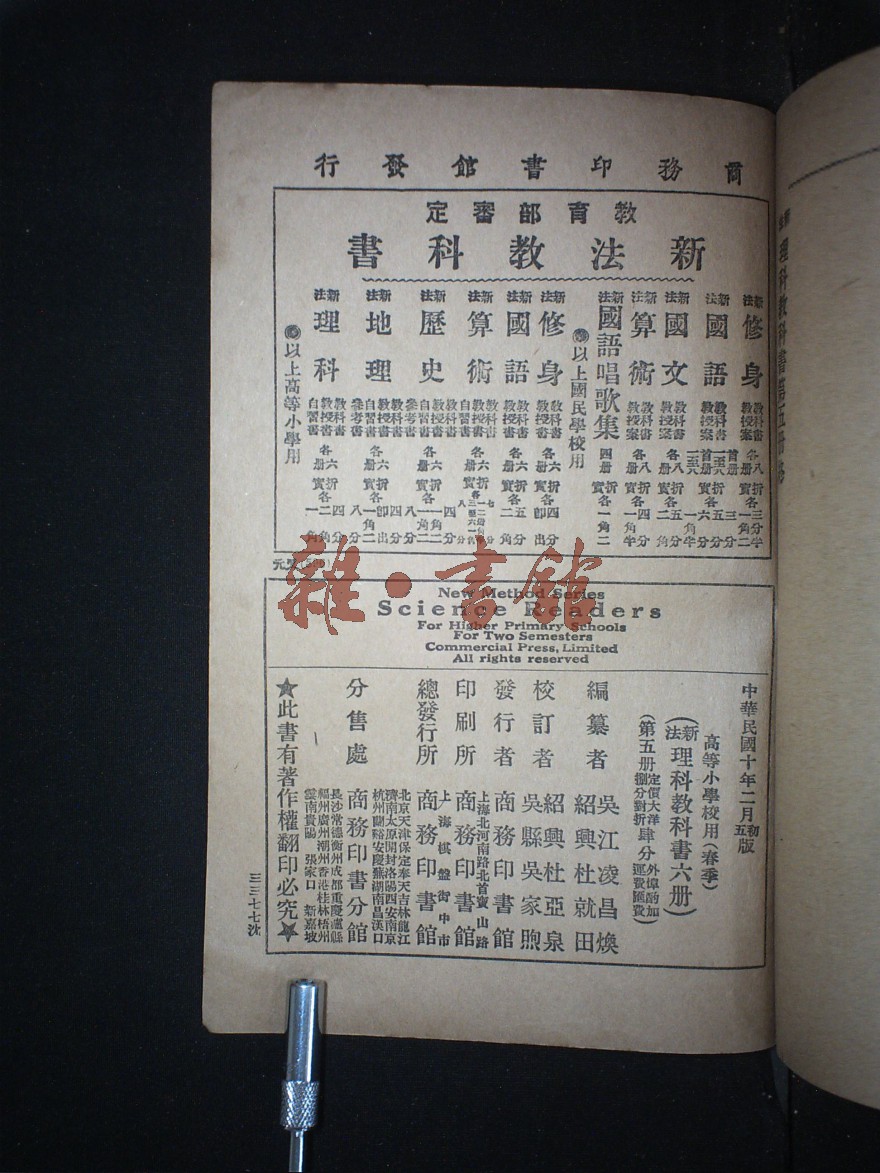 商務印書館發行
教育部審定
新法教科書
新法修身 教科書 教授案 各八册
新法國語 教科書 教授案 首册 一至八
新法國文 教科書 教授案 各八册
新法算術 教科書 教授案 各八册
新法國語唱歌集 四册
以上國民學校用
新法修身 教科書 教授書 各六册
新法國語 教科書 教授書 各六册
新法算術 教科書 教授書 自習書 各六册
新法歷史 教科書 教授書 自習書 參考書 各六册
新法地理 教科書 教授書 自習書 參考書 各六册
新法理科 教科書 教授書 自習書 各六册
以上高等小學用
雜·書館
New Method Series
Science Readers
For Higher Primary Schools
For Two Semesters
Commercial Press, Limited
All rights reserved
中華民國十年二月初五版
高等小學校用(春季)
(新法理科教科書六册)
(第五册定價大洋捌分對折肆分外埠酌加運費匯費)
編纂者 吳江凌昌煥 紹興杜就田
校訂者 紹興杜亞泉 吳縣吳家煦
發行者 商務印書館
印刷所 上海北河南路北首寶山路 商務印書館
總發行所 上海棋盤街中市 商務印書館
分售處 商務印書分館
北京天津保定奉天吉林龍江
濟南太原開封洛陽西安南京
杭州蘭谿安慶蕪湖南昌漢口
長沙常德衡州成都重慶瀘縣
福州廣州潮州香港桂林梧州
雲南貴陽 張家口 新嘉坡
★此書有著作權翻印必究★
三三七七沈
理科教科書第五册